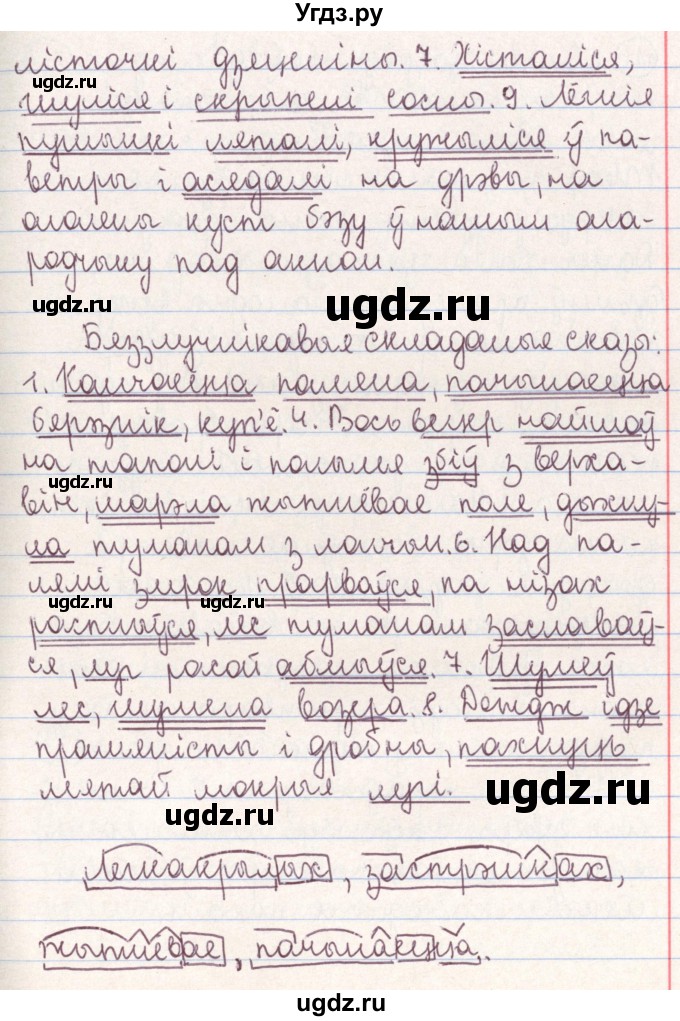 Угдз.ру
лісточкі дзяцініны. 7. Хісталіся,
гнуліся і скрыпелі сосны. 9. Лёгкія
пушынкі ляталі, кружыліся ў па-
ветры і аселдалі на дрэвы, на
аголены куст бэзу ў нашым ага-
родчыку пад акном.
ugdz.ru
Беззлучнікавыя складаныя сказы:
1. Канчаецца паляна, пачынаецца
бярэзнік, куп'ё. 4. Вось вецер найшоў
на таполі і полымя збіў з верха-
він, шарэла жытнёвае поле, дыхну-
ла туманам з лагчын. 6. Над па-
лямі змрок прарваўся, па нізах
расплыўся, лес туманам засланаў-
ся, луг расой абмыўся. 7. Шумеў
лес, шумела возера. 8. Дождж ідзе
прамяністы і дробны, пахнуць
мятай мокрыя лугі.
ugdz.ru
Легкакрылых, застрэшках,
жытнёвае, пачынаецца.
ugdz.ru